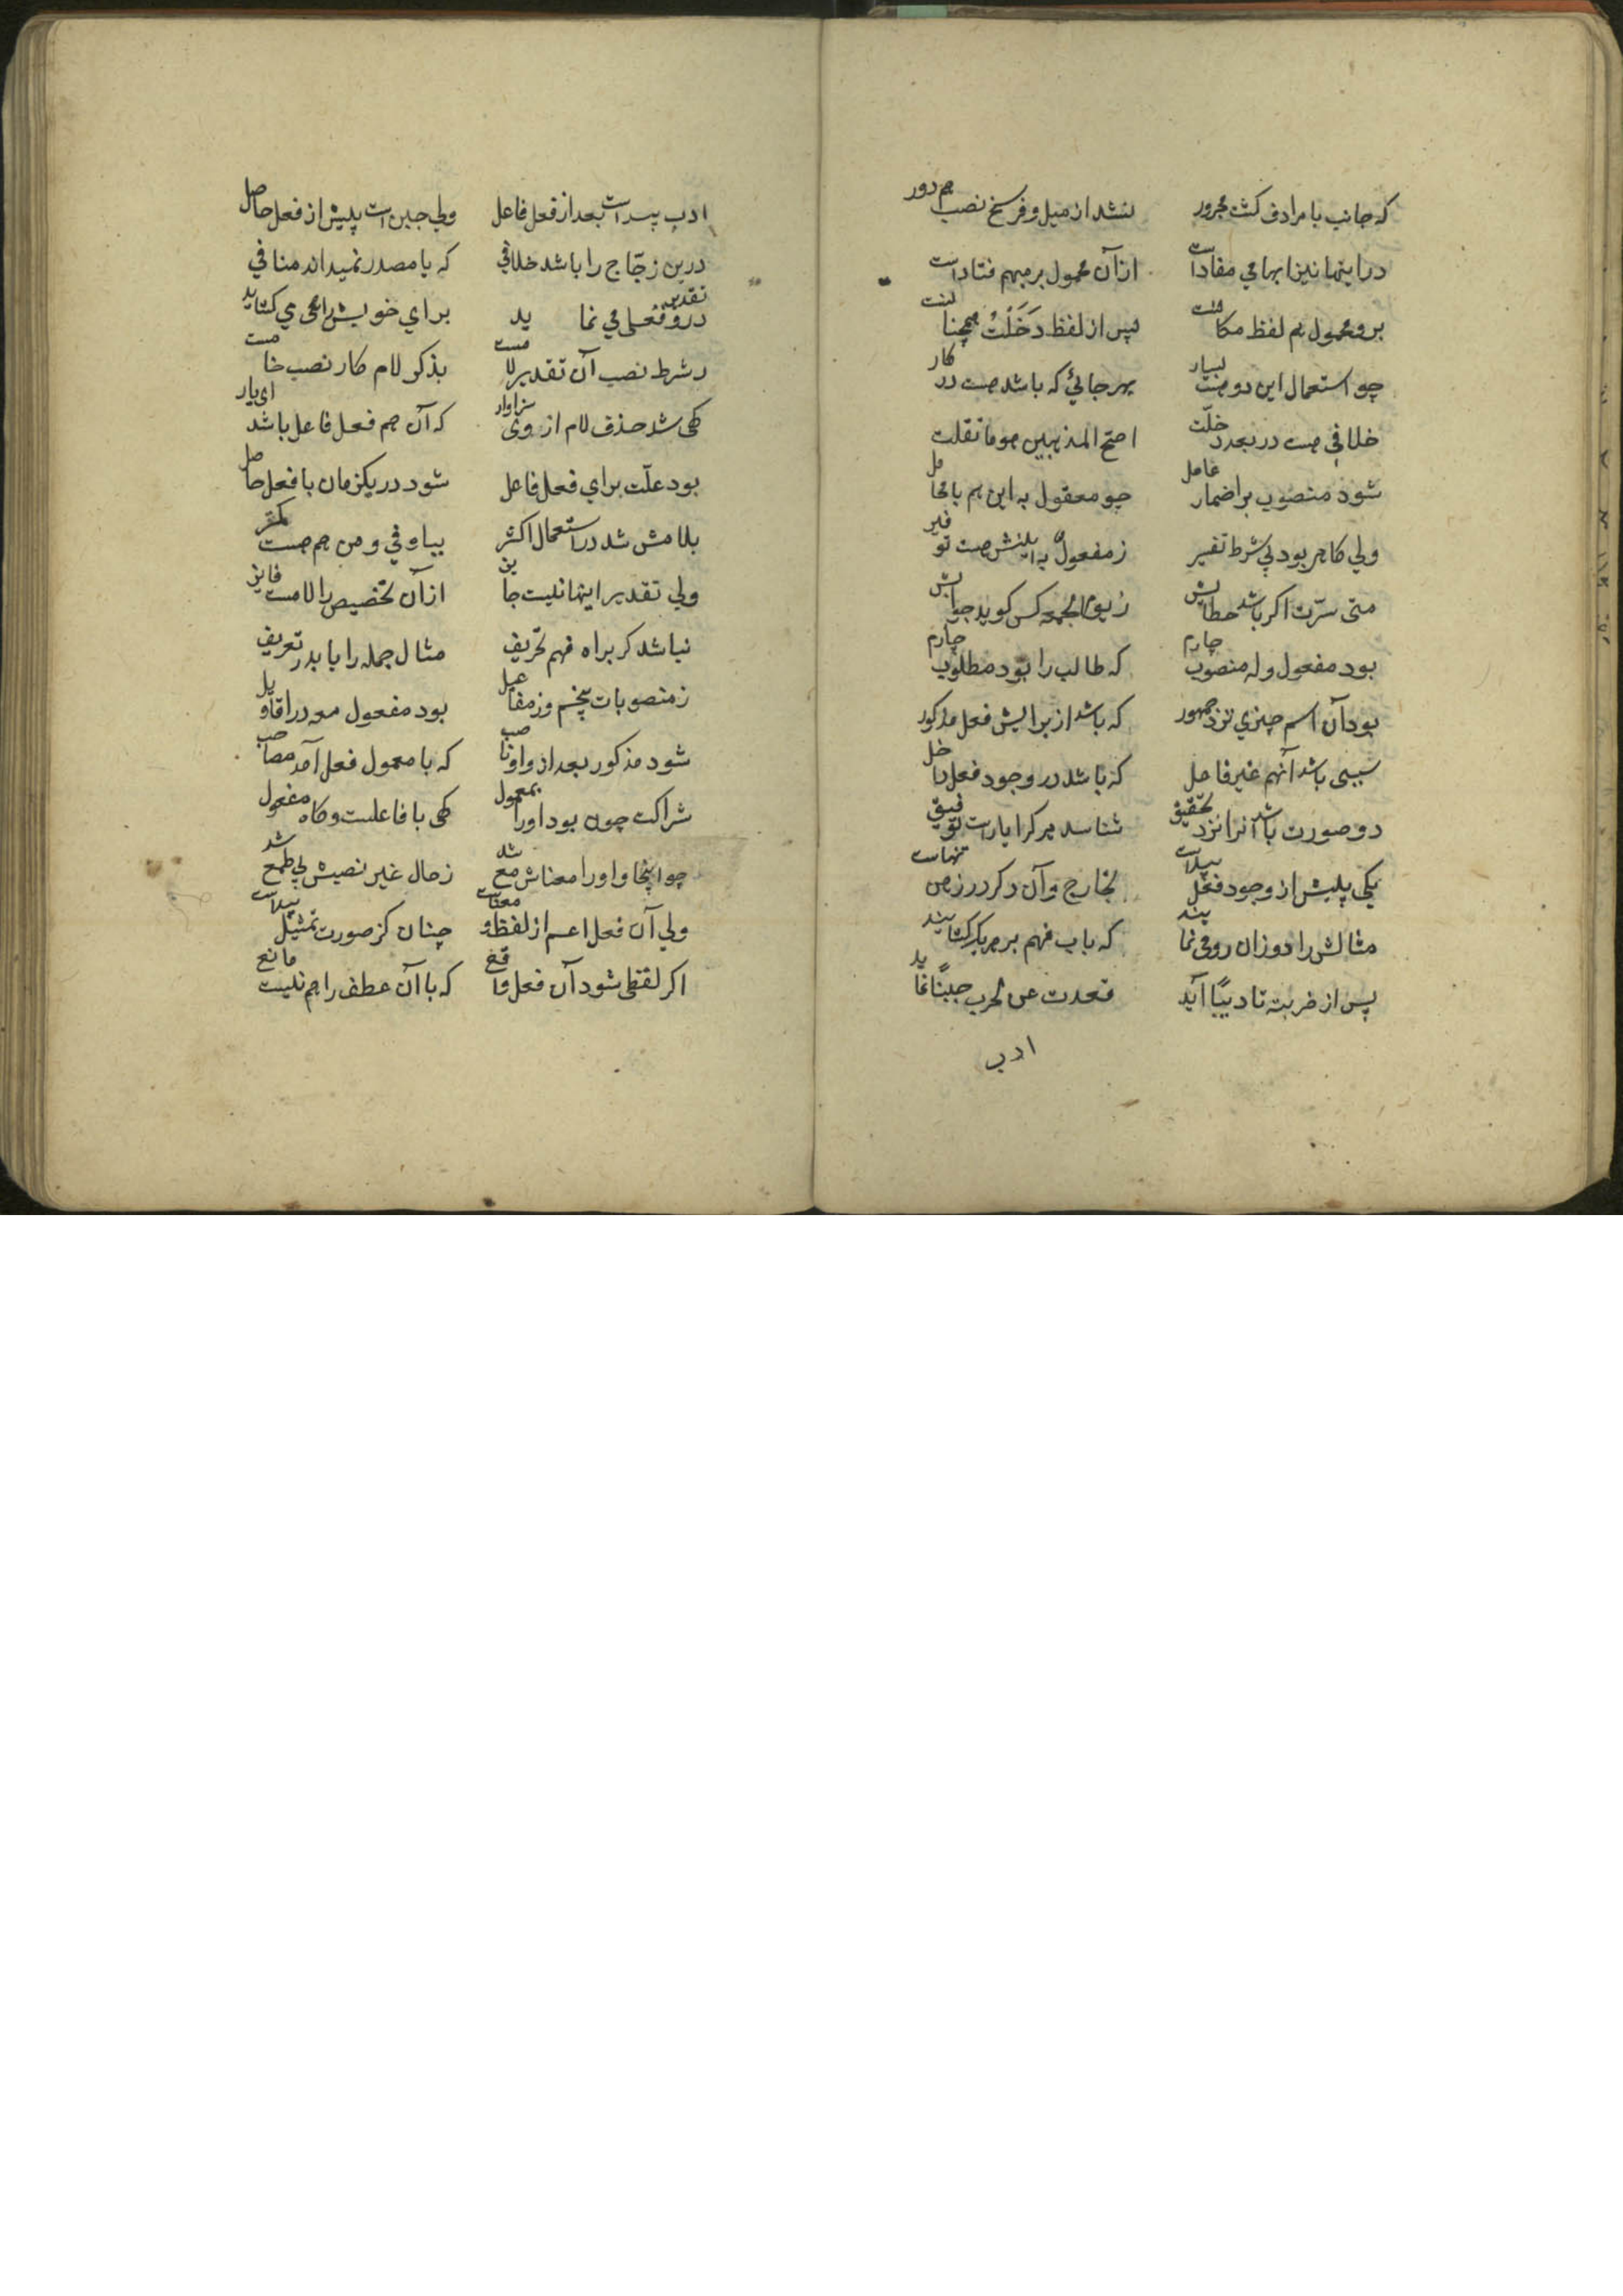 که جانب با مرادف کشت مجرور نشد از میل و فرسخ نصب هم دور
در اینها نیز ابهامی مفادست از آن محمول بر مبهم فتادست
برو محمول هم لفظ مکانست پس از لفظ دَخَلْتُ همچنانست
چو استعمال این دو هست بسیار بهر جائی که باشد هست در کار
خلافی هست در بعد دخلت اصح المذهبین هو ما نقلت
شود منصوب بر اضمار عامل چو معقول به این هم با
ولی کاهی بود بی شرط تفسیر ز مفعول به
متی سرت اکر باشد خطابش ز یوم الجمعه کس کوید جوابش
بود مفعول وله منصوب چارم که طالب را بود مطلوب چارم
بود آن اسم چیزی نزد جمهور که باشد از برایش فعل مذکور
سببی باشد آنهم غیر فاعل که باشد در وجود فعل داخل
دو صورت باشد آنرا نزد تحقیق شناسد هر کرا یارست توفیق
یکی پیش از وجود فعل پیداست بخارج وآن دکر در ذهن تنهاست
مثالش را دو زان رو می نمایند که باب فهم بر هر یک کشایند
پس از ضربته تادیباً آید قعدت عن الحرب جبناً نماید
ادب
ادب پیداست بعد از فعل فاعل ولی جبن است پیش از فعل حاصل
درین زجّاج را باشد خلافی که با مصدر نمیداند منافی
درو تقدیر فعلی می نماید برای خویش راهی می کشاید
و شرط نصب آن تقدیر لامست بذکر لام کار نصب خامست
کهی شد حذف لام از وی سزاوار که آن هم فعل فاعل باشد ای یار
بود علّت برای فعل فاعل شود در یکزمان با فعل حاصل
بلامش شد در استعمال اکثر بیا و فی و من هم هست کمتر
ولی تقدیر اینها نیست جایز از آن تخصیص را لامست فایز
نباشد کر براه فهم تحریف مثال جمله را یابد ز تعریف
ز منصوبات پنجم وز مفاعیل بود مفعول معه در اقاویل
شود مذکور بعد از واو ناصب که با معمول فعل آمد مصاحب
شراکت چون بود او را بمعمول کهی با فاعلست و کاه مفعول
چو اینجا واو را معناش مع شد ز حال غیر نصبش بی طمع شد
ولی آن فعل اعم از لفظ و معناست چنان کز صورت تمثیل پیداست
اکر لفظی شود آن فعل واقع که با آن عطف را هم نیست مانع